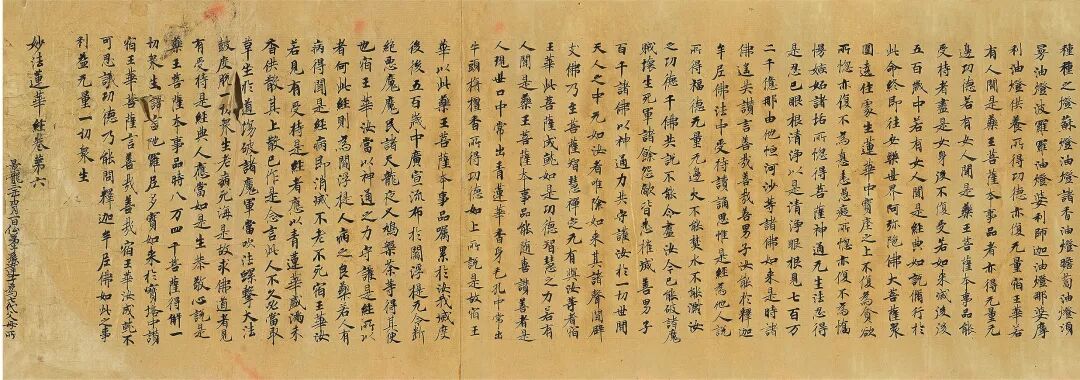 種種之燈蘇燈油燈諸香油燈瞻蔔油燈須
曼油燈波羅羅油燈婆利師迦油燈那婆摩
利油燈供養所得功德亦復无量宿王華若
有人聞是藥王菩薩本事品者亦得无量无
邊功德若有女人聞是藥王菩薩本事品能
受持者盡是女身後不復受若如來滅後後
五百歲中若有女人聞是經典如說脩行於
此命終即往安樂世界阿彌陁佛大菩薩衆
圍遶住處生蓮華中寶座之上不復為貪欲
所惱亦復不為瞋恚愚癡所惱亦復不為憍
慢嫉妬諸垢所惱得菩薩神通无生法忍得
是忍已眼根清淨以是清淨眼根見七百万
二千億那由他恒河沙等諸佛如來是時諸
佛遙共讚言善哉善哉善男子汝能於釋迦
牟尼佛法中受持讀誦思惟是經為他人說
所得福德无量无邊火不能焚水不能漂汝
之功德千佛共說不能令盡汝今已能破諸魔
賊壞生死軍諸餘怨敵皆悉摧滅善男子
百千諸佛以神通力共守護汝於一切世間
天人之中无如汝者唯除如來其諸聲聞辟
支佛乃至菩薩智慧禪定无有與汝等者宿
王華此菩薩成就如是功德智慧之力若有
人聞是藥王菩薩本事品能隨喜讚善者是
人現世口中常出青蓮華香身毛孔中常出
牛頭栴檀香所得功德如上所說是故宿王
華以此藥王菩薩本事品囑累於汝我滅度
後後五百歲中廣宣流布於閻浮提无令斷
絕惡魔魔民諸天龍夜叉鳩槃荼等得其便
也宿王華汝當以神通之力守護是經所以
者何此經則為閻浮提人病之良藥若人有
病得聞是經病即消滅不老不死宿王華汝
若見有受持是經者應以青蓮華盛滿末
香供散其上散已作是念言此人不久必當取
草坐於道場破諸魔軍當吹法螺擊大法
鼓度脫一切衆生老病死海是故求佛道者見
有受持是經典人應當如是生恭敬心說是
藥王菩薩本事品時八万四千菩薩得解一
切衆生語言陁羅尼多寶如來於寶塔中讚
宿王華菩薩言善哉善哉宿王華汝成就不
可思議功德乃能問釋迦牟尼佛如此之事
利益无量一切衆生
妙法蓮華經卷第六
景龍三年